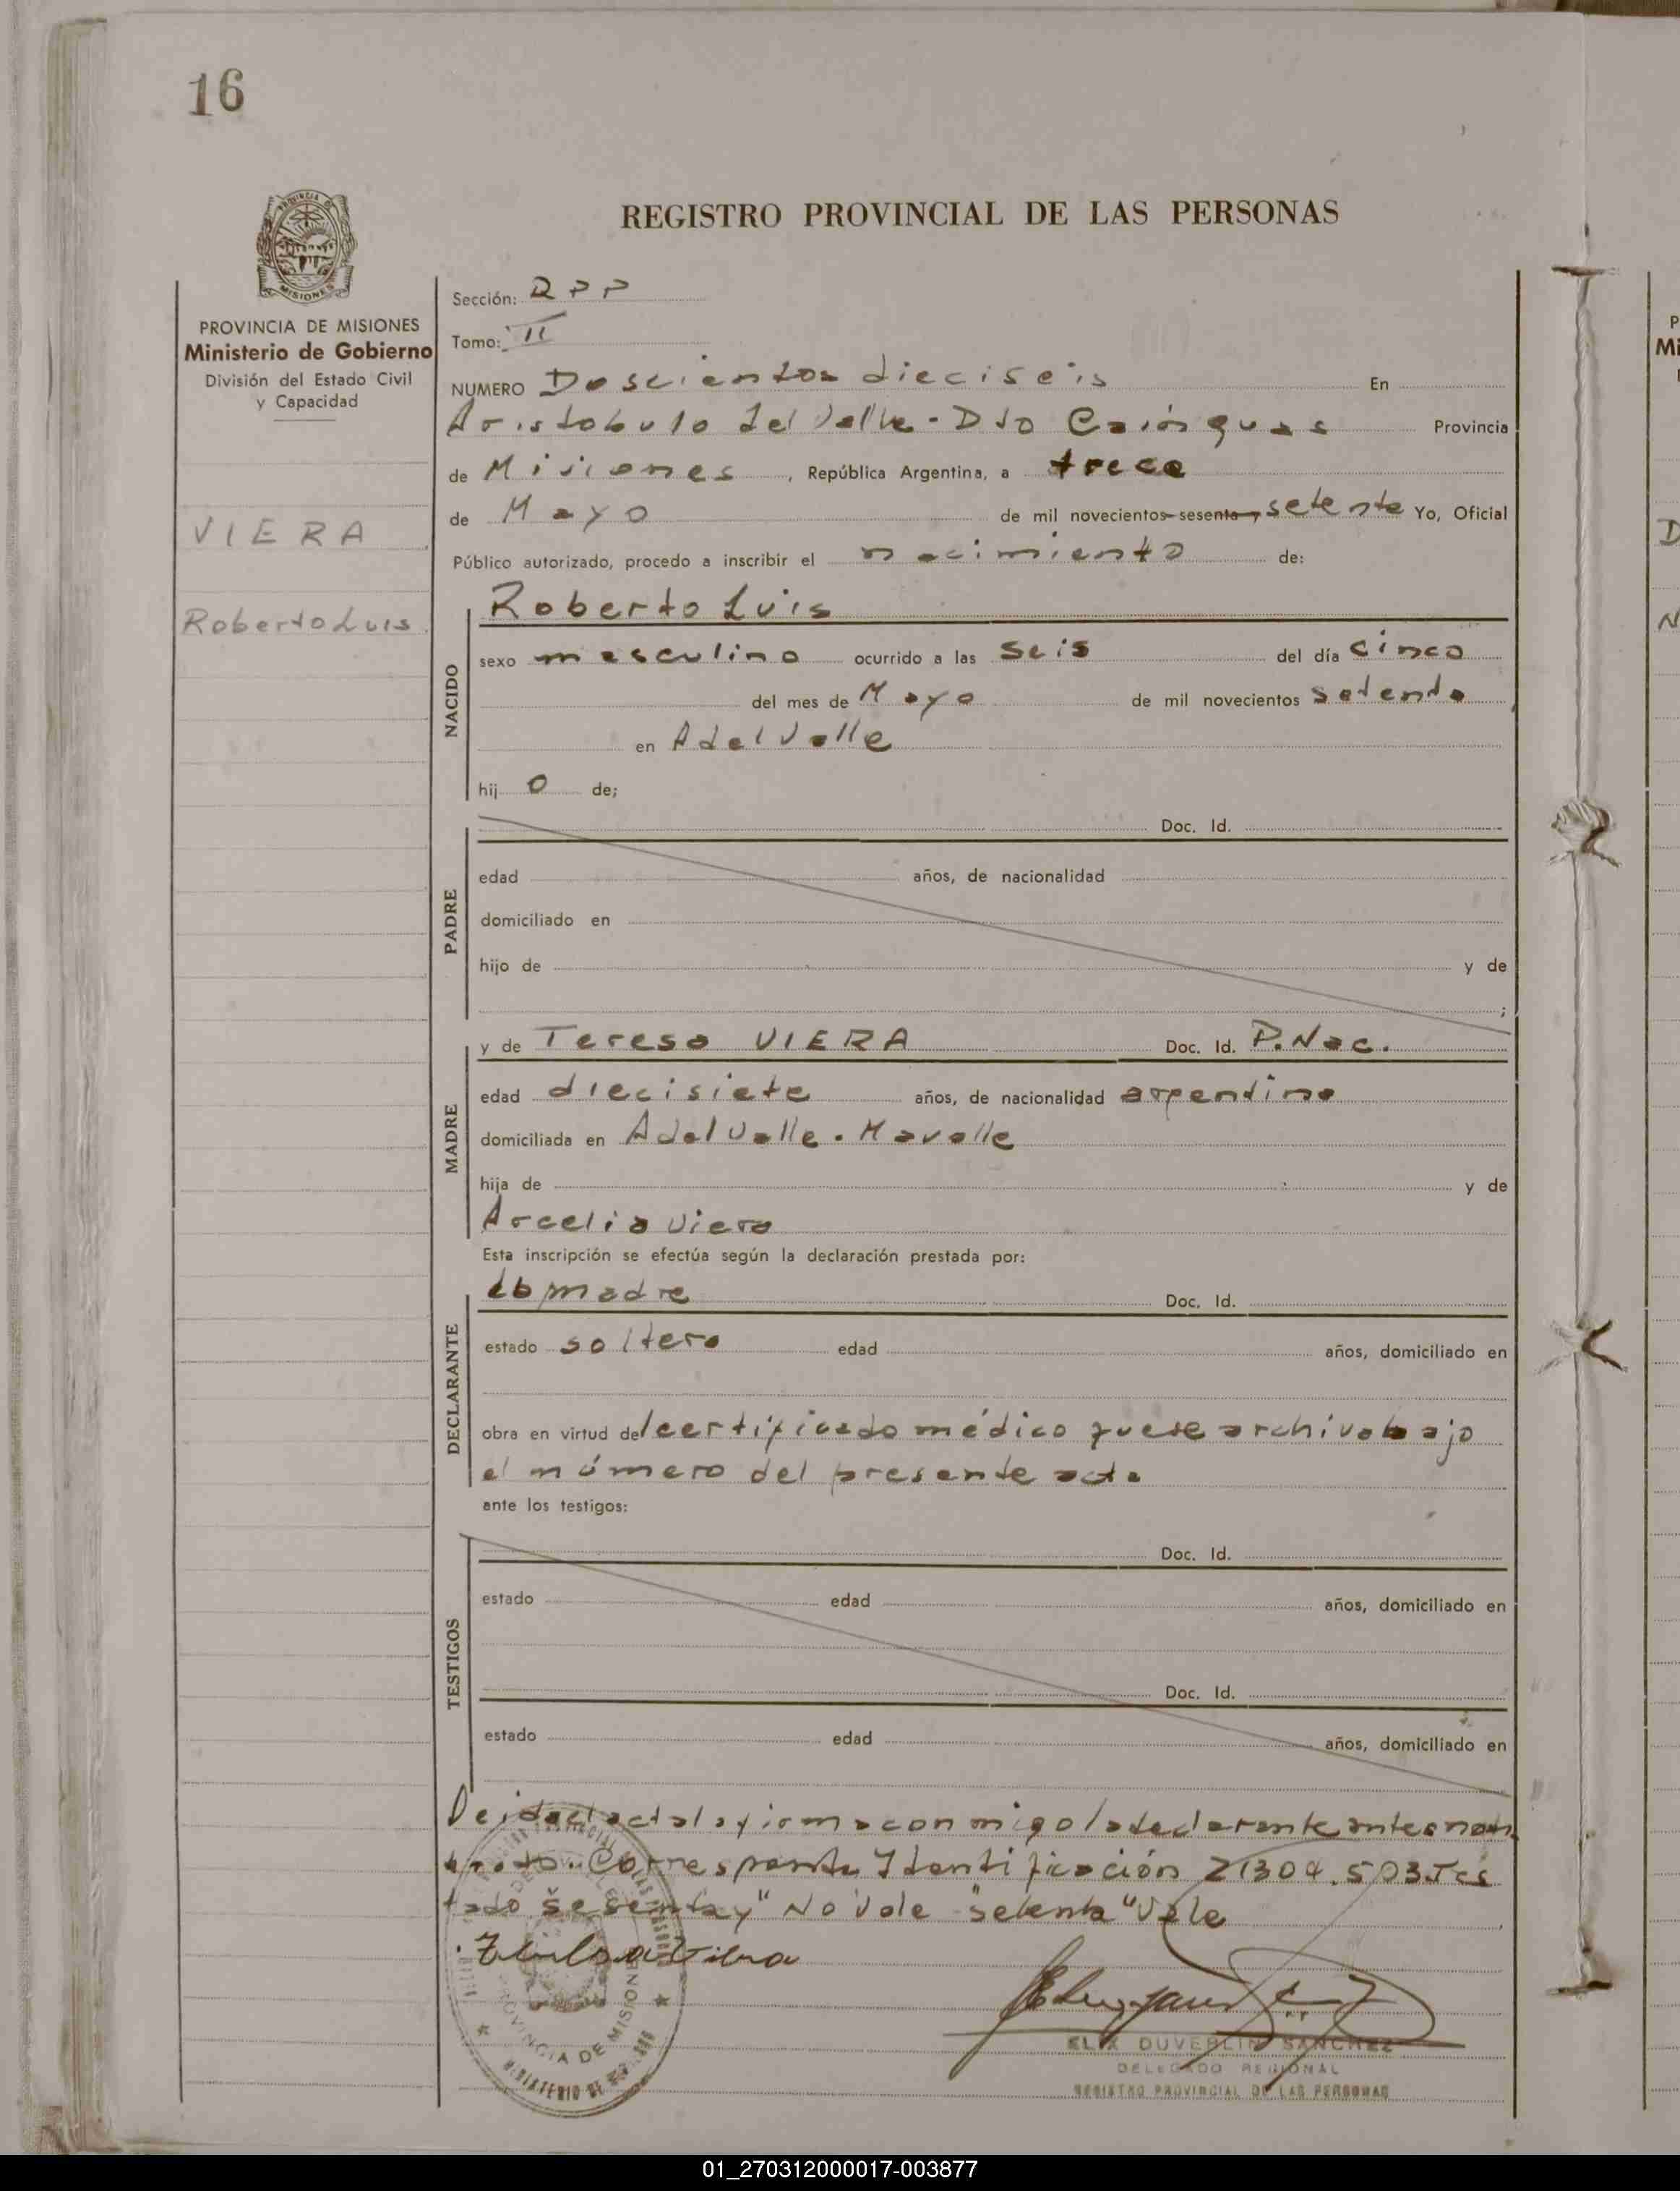 16
REGISTRO PROVINCIAL DE LAS PERSONAS
PROVINCIA DE
MISIONES
PROVINCIA DE MISIONES
Ministerio de Gobierno
División del Estado Civil
y Capacidad
VIERA
Roberto Luis
Sección: RPP
Tomo: II
NUMERO Doscientos dieciseis En
Aristobulo del Valle - Dto Cainguas Provincia
de Misiones, República Argentina, a trece
de Mayo de mil novecientos sesenta, setenta Yo, Oficial
Público autorizado, procedo a inscribir el nacimiento de:
NACIDO
Roberto Luis
sexo masculino ocurrido a las seis del día cinco
del mes de Mayo de mil novecientos setenta
en A del Valle
hij o de;
PADRE
Doc. Id.
edad años, de nacionalidad
domiciliado en
hijo de y de
;
MADRE
y de Teresa VIERA Doc. Id. P. Nac.
edad diecisiete años, de nacionalidad argentina
domiciliada en A del Valle.
hija de y de
Arcelia Viera
Esta inscripción se efectúa según la declaración prestada por:
DECLARANTE
la madre Doc. Id.
estado soltera edad años, domiciliado en
obra en virtud del certificado médico que se archiva bajo
el número del presente acta
ante los testigos:
TESTIGOS
Doc. Id.
estado edad años, domiciliado en
Doc. Id.
estado edad años, domiciliado en
Leida el acta la firma conmigo la declarante
Corresponde Identificación 21304.503 Tes
tado "sesenta y" No Vale "setenta" Vale
PROVINCIA DE MISIONES
ELIX DUVERLIN SANCHEZ
DELEGADO REGIONAL
REGISTRO PROVINCIAL DE LAS PERSONAS
P
Mi
D
N
01_270312000017-003877